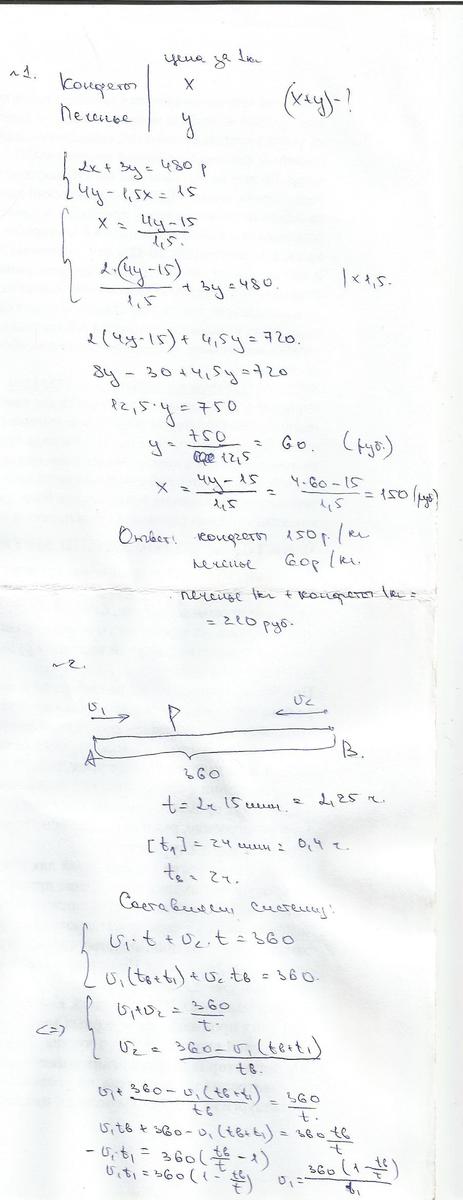 цена за 1кг
№1. Конфеты | x (x+y)-?
Печенье | y
2x + 3y = 480 р
4y - 1,5x = 15
x = (4y-15)/1,5.
2·(4y-15)/1,5 + 3y = 480. | x 1,5.
2(4y-15) + 4,5y = 720.
8y - 30 + 4,5y = 720
12,5·y = 750
y = 750/12,5 = 60. (руб.)
x = (4y-15)/1,5 = (4·60-15)/1,5 = 150 (руб)
Ответ: конфеты 150р./кг
печенье 60р/кг.
печенье 1кг + конфеты 1кг =
= 210 руб.
№2.
v₁ P v₂
A B.
360
t = 2ч 15 мин. = 2,25 ч.
[t₁] = 24 мин = 0,4 ч.
tв = 2ч.
Составляем систему:
v₁·t + v₂·t = 360
v₁(tв+t₁) + v₂·tв = 360.
<=> v₁+v₂ = 360/t.
v₂ = (360 - v₁(tв+t₁))/tв.
v₁ + (360 - v₁(tв+t₁))/tв = 360/t.
v₁tв + 360 - v₁(tв+t₁) = 360 tв/t
-v₁t₁ = 360(tв/t - 1)
v₁t₁ = 360(1 - tв/t) v₁ = 360(1 - tв/t)/t₁